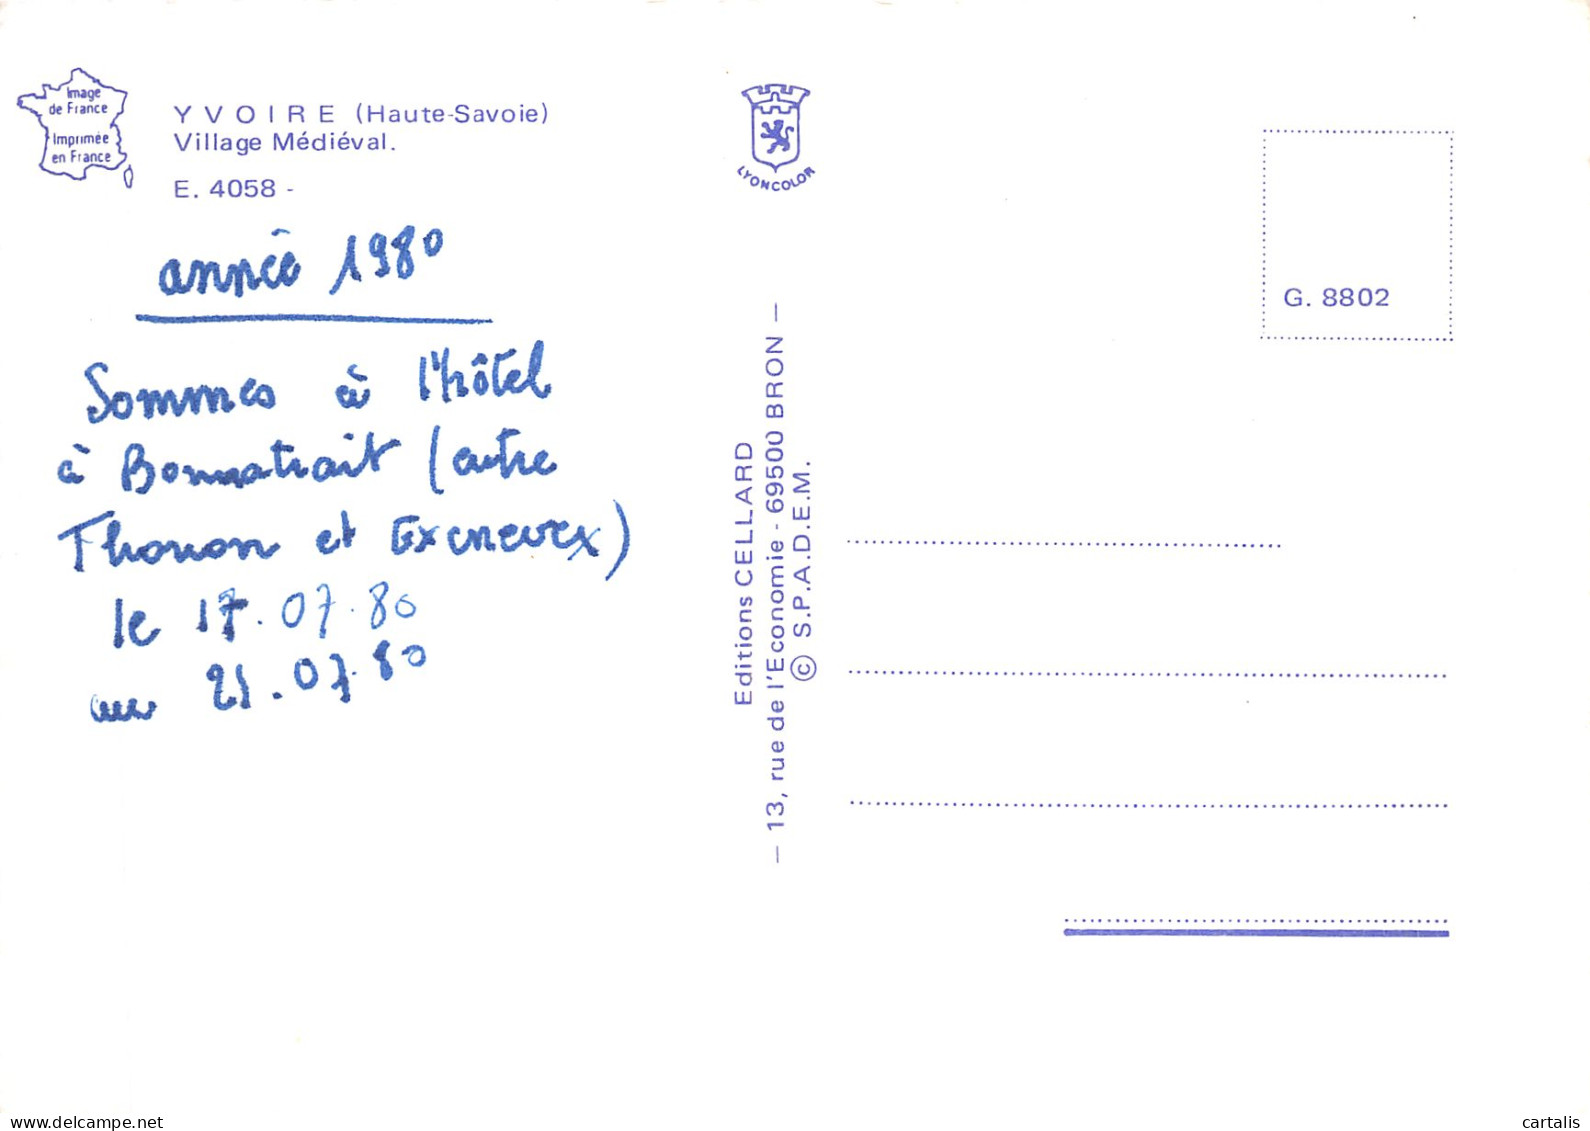 Image
de France
Imprimée
en France
YVOIRE (Haute-Savoie)
Village Médiéval.
E. 4058 -
année 1980
Sommes à l'hôtel
à Bonnatrait (entre
Thonon et Excenevex)
le 17.07.80
au 21.07.80
LYONCOLOR
Editions CELLARD
— 13, rue de l'Economie - 69500 BRON —
© S.P.A.D.E.M.
G. 8802
www.delcampe.net
cartalis